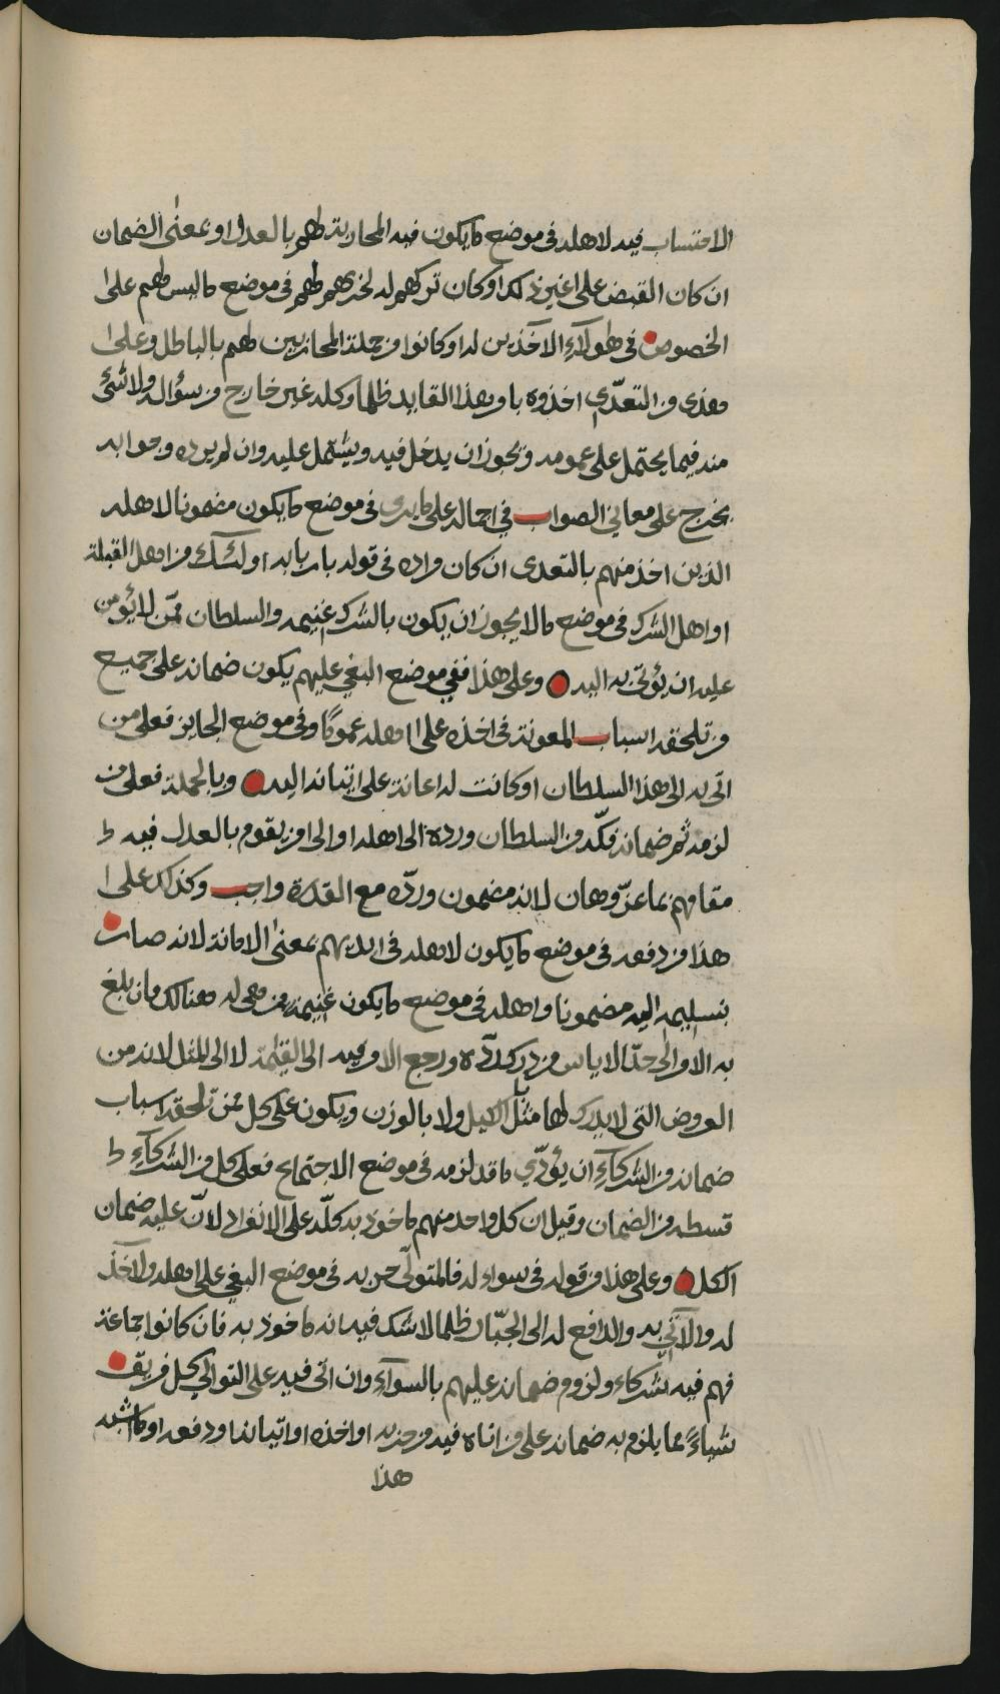 الاحتساب فيه لاهله في موضع ما يكون فيه المحاربة لهم بالعدل او بمعنى الضمان
ان كان القبض على غير ذلك او كان تركهم له لخزيهم لهم في موضع ما ليس لهم على
الخصوص في هولآءِ الآخذين له او كانوا من جملة المحاربين لهم بالباطل وعلى
من التعدّي اخذوه بامر هذا القايد ظلما وكله غير خارج من سؤاله ولا شئ
منه فيما يحتمل على عمومه ويجوز ان يدخل فيه ويشتمل عليه وان لم يرده وجوابه
يخرج على معاني الصواب في اجماله على ما يرى في موضع ما يكون مضمونا لاهله
الذين اخذ منهم بالتعدى ان كان مراده في قوله باربابه اولئك من اهل القبلة
او اهل الشرك في موضع ما لا يجوز ان يكون بالشرك غنيمه والسلطان ممّن لا يؤمن
عليه ان يؤتى به اليه وعلى هذا ففي موضع البغي عليهم يكون ضمانه على جميع
من تلحقه اسباب المعونة في اخذه على اهله عمومًا وفي موضع الجايز فعلى من
اتى به الى هذا السلطان او كانت له اعانة على اتيانه اليه وبالجملة فعلى من
لزمه ثم ضمانه فكّه من السلطان ورده الى اهله او الى من يقوم بالعدل فيه
مقامهم بما عزّ وهان لانه مضمون وردّه مع القدرة واجب وكذلك على
هذا من دفعه في موضع ما يكون لاهله في ايديهم بمعنى الامانة لانه صار
بتسليمه اليه مضمونا واهله في موضع ما يكون غنيمة من هي له هنالك وان بلغ
به الامر الى حدّ الاياس من درك ردّه ورجع الامر فيه الى القيمة لا الى المثل لانه من
العروض التي لا يدرك لها مثل بالكيل ولا بالوزن ويكون على كل من تلحقه اسباب
ضمانه من الشركآءِ ان يؤدّي ما قد لزمه في موضع الاجتماع فعلى كل من الشركآءِ
قسطه من الضمان وقيل ان كل واحد منهم ماخوذ به كلّه على الانفراد لانّ عليه ضمان
الكل وعلى هذا من قوله في سواله فالمتولّي حزبه في موضع البغي على اهله والآخذ
له والآتي به والدافع له الى الجبّار ظلما لا شك فيه انه ماخوذ به فان كانوا جماعة
فهم فيه شركاء ولزوم ضمانه عليهم بالسوآءِ وان اتى فيه على التوالي كل فريق
شياءً مما يلزم به ضمانه على من اتاه فيه من حزبه او اخذه او اتيانه او دفعه او ما اشبه
هذا